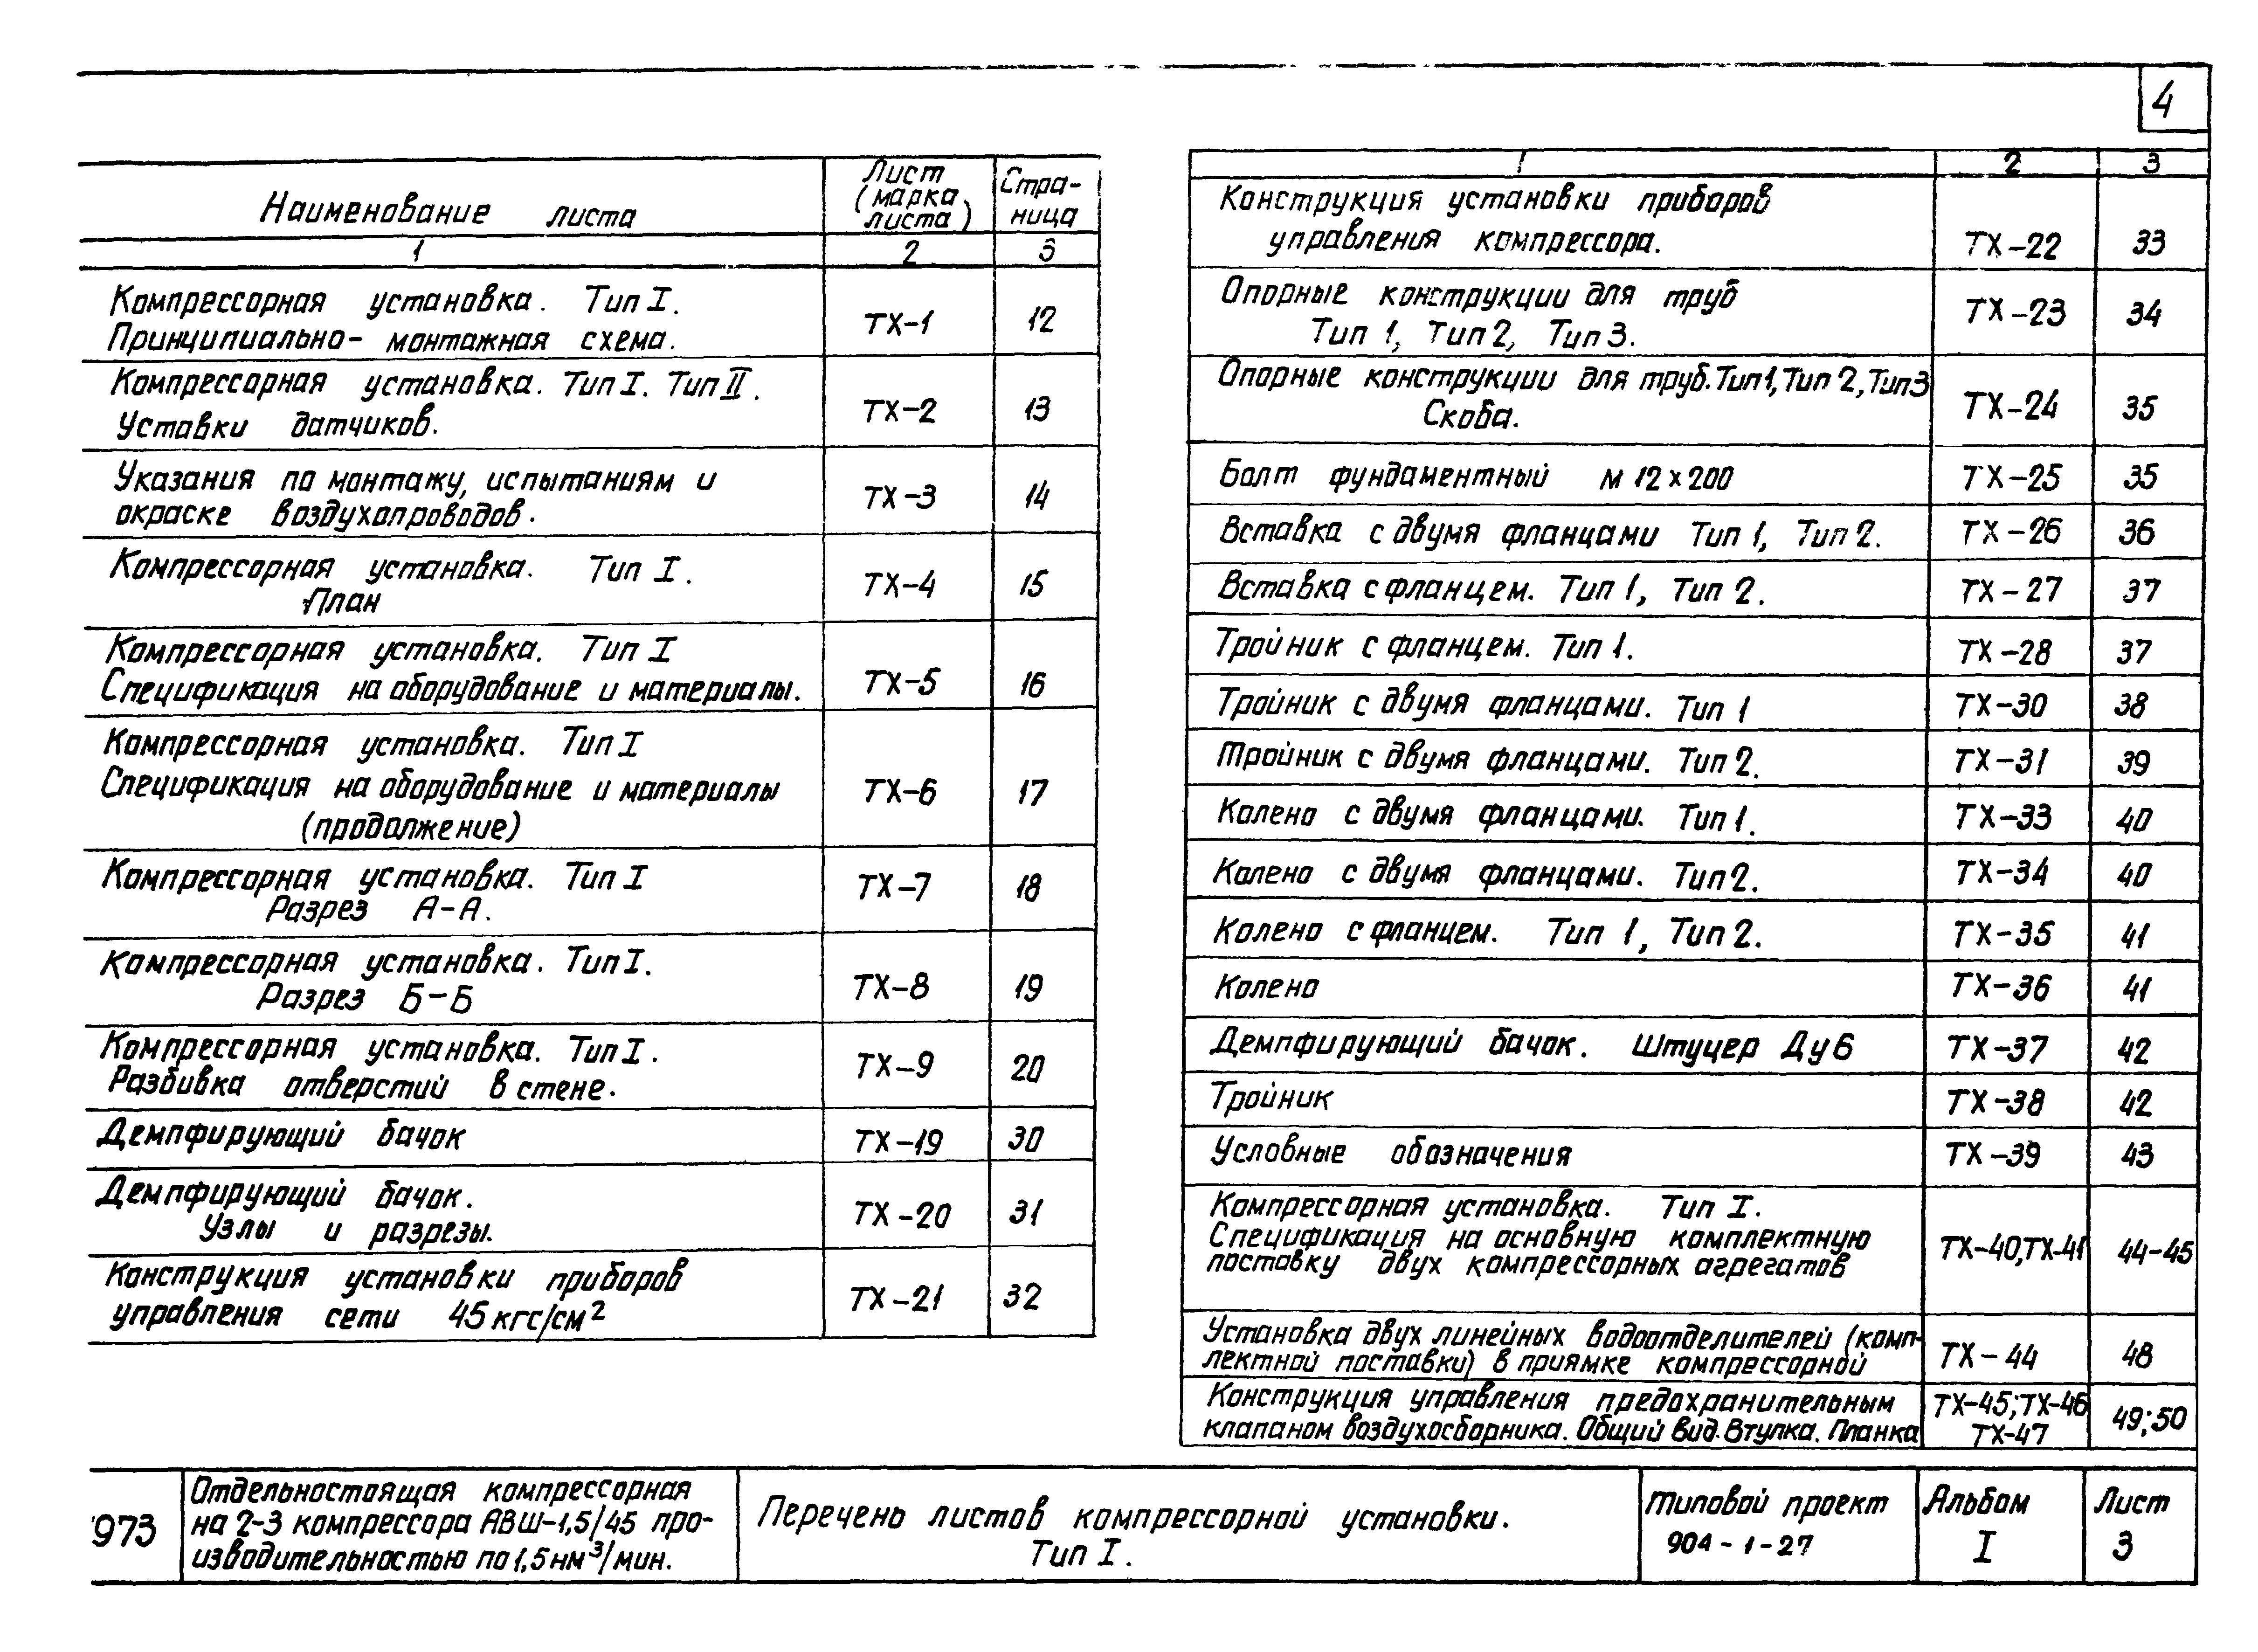 4
Наименование листа
Лист
(марка
листа)
Стра-
ница
1 2 3
Компрессорная установка. Тип I.
Принципиально- монтажная схема.
ТХ-1 12
Компрессорная установка. Тип I. Тип II.
Уставки датчиков.
ТХ-2 13
Указания по монтажу, испытаниям и
окраске воздухопроводов.
ТХ-3 14
Компрессорная установка. Тип I.
План
ТХ-4 15
Компрессорная установка. Тип I
Спецификация на оборудование и материалы.
ТХ-5 16
Компрессорная установка. Тип I
Спецификация на оборудование и материалы
(продолжение)
ТХ-6 17
Компрессорная установка. Тип I
Разрез А-А.
ТХ-7 18
Компрессорная установка. Тип I.
Разрез Б-Б
ТХ-8 19
Компрессорная установка. Тип I.
Разбивка отверстий в стене.
ТХ-9 20
Демпфирующий бачок ТХ-19 30
Демпфирующий бачок.
Узлы и разрезы.
ТХ-20 31
Конструкция установки приборов
управления сети 45 кгс/см²
ТХ-21 32
1 2 3
Конструкция установки приборов
управления компрессора.
ТХ-22 33
Опорные конструкции для труб
Тип 1, Тип 2, Тип 3.
ТХ-23 34
Опорные конструкции для труб. Тип 1, Тип 2, Тип 3
Скоба.
ТХ-24 35
Болт фундаментный М 12 х 200 ТХ-25 35
Вставка с двумя фланцами Тип 1, Тип 2. ТХ-26 36
Вставка с фланцем. Тип 1, Тип 2. ТХ-27 37
Тройник с фланцем. Тип 1. ТХ-28 37
Тройник с двумя фланцами. Тип 1 ТХ-30 38
Тройник с двумя фланцами. Тип 2. ТХ-31 39
Колено с двумя фланцами. Тип 1. ТХ-33 40
Колено с двумя фланцами. Тип 2. ТХ-34 40
Колено с фланцем. Тип 1, Тип 2. ТХ-35 41
Колено ТХ-36 41
Демпфирующий бачок. Штуцер Ду 6 ТХ-37 42
Тройник ТХ-38 42
Условные обозначения ТХ-39 43
Компрессорная установка. Тип I.
Спецификация на основную комплектную
поставку двух компрессорных агрегатов
ТХ-40, ТХ-41 44-45
Установка двух линейных водоотделителей (комп-
лектной поставки) в приямке компрессорной
ТХ-44 48
Конструкция управления предохранительным
клапаном воздухосборника. Общий вид. Втулка. Планка
ТХ-45; ТХ-46
ТХ-47
49; 50
973
Отдельностоящая компрессорная
на 2-3 компрессора АВШ-1,5/45 про-
изводительностью по 1,5 нм³/мин.
Перечень листов компрессорной установки.
Тип I.
Типовой проект
904-1-27
Альбом
I
Лист
3